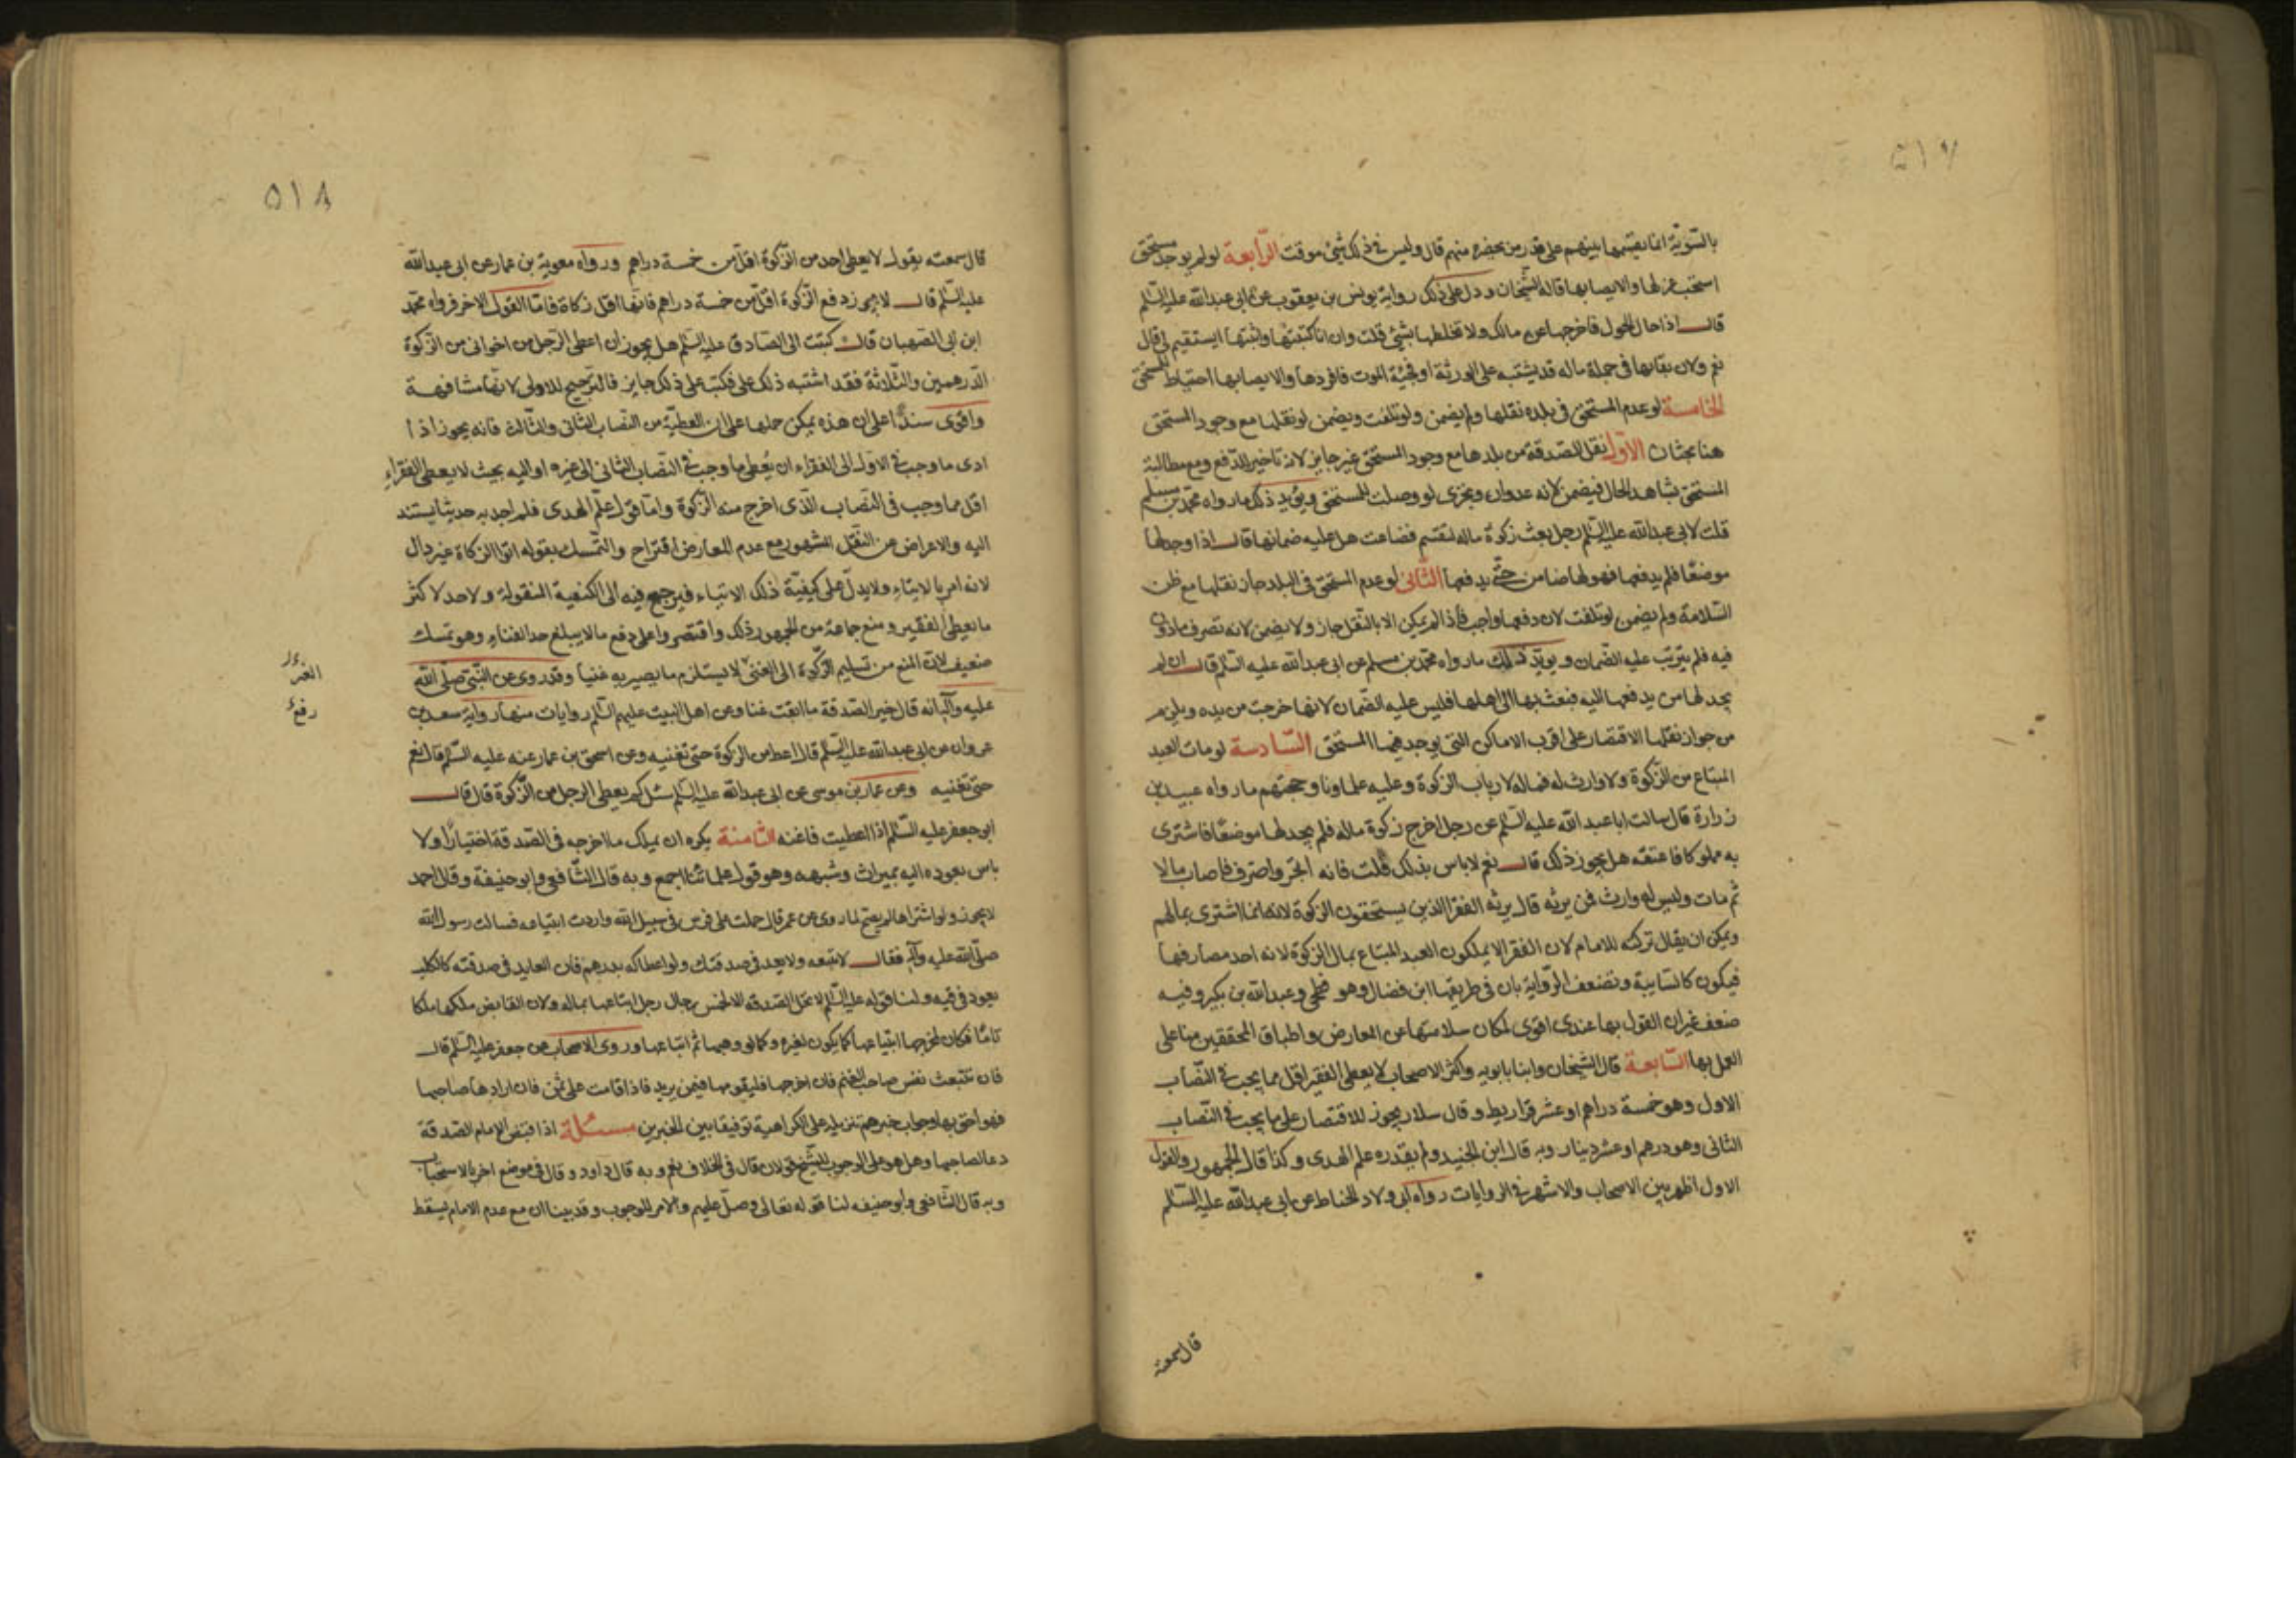 ٥١٧
بالتسوية انما يقسمها بينهم على قدر من يحضره منهم قال وليس في ذلك شيئ موقت الرابعة لو لم يوجد مستحق
استحب عزلها والايصا بها قاله الشيخان ودل على ذلك رواية يونس بن يعقوب عن ابى عبدالله عليه السلم
قال اذا حال الحول فاخرجها عن مالك ولا تخلطها بشيئ قلت وان انا كتبتها واثبتها ايستقيم لى قال
نعم ولان بقاءها فى جملة ماله قد يشتبه على الورثة او فجيئة الموت فافردها والايصا بها احتياط للمستحق
الخامسة لو عدم المستحق فى بلده نقلها ولم يضمن ولو تلفت ويضمن لو نقلها مع وجود المستحق
هنا بحثان الاول نقل الصدقة من بلدها مع وجود المستحق غير جايز لانه تاخير للدفع ومع مطالبة
المستحق بشاهد الحال فيضمن لانه عدوان ويجزى لو وصلت للمستحق ويؤيد ذلك ما رواه محمد بن مسلم
قلت لابى عبدالله عليه السلم رجل بعث زكوة ماله لتقسم فضاعت هل عليه ضمانها قال اذا وجد لها
موضعا فلم يدفعها فهو لها ضامن حتى يدفعها الثانى لو عدم المستحق فى البلد جاز نقلها مع ظن
السلامة ولم يضمن لو تلفت لان دفعها واجب فاذا لم يمكن الا بالنقل جاز ولا يضمن لانه تصرف ماذون
فيه فلم يترتب عليه الضمان ويويد ذلك ما رواه محمد بن مسلم عن ابى عبدالله عليه السلم قال ان لم
يجد لها من يدفعها اليه فبعث بها الى اهلها فليس عليه الضمان لانها خرجت من يده ويلزم
من جواز نقلها الاقتصار على اقرب الاماكن التى يوجد فيها المستحق السادسة لو مات العبد
المبتاع من الزكوة ولا وارث له فماله لارباب الزكوة وعليه علماونا وحجتهم ما رواه عبيد بن
زرارة قال سالت ابا عبد الله عليه السلم عن رجل اخرج زكوة ماله فلم يجد لها موضعا فاشترى
به مملوكا فاعتقه هل يجوز ذلك قال نعم لا باس بذلك قلت فانه اتجر واحترف فاصاب مالا
ثم مات وليس له وارث فمن يرثه قال يرثه الفقرا الذين يستحقون الزكوة لانه انما اشترى بمالهم
ويمكن ان يقال تركته للامام لان الفقرا لا يملكون العبد المبتاع بمال الزكوة لانه احد مصارفها
فيكون كالسايبة وتضعف الرواية بان فى طريقها ابن فضال وهو فطحى وعبدالله بن بكير وفيه
ضعف غير ان القول بها عندى اقوى لمكان سلامتها عن المعارض واطباق المحققين منا على
العمل بها السابعة قال الشيخان وابنا بابويه واكثر الاصحاب لا يعطى الفقير اقل مما يجب فى النصاب
الاول وهو خمسة دراهم او عشر قراريط وقال سلار يجوز للاقتصار على ما يجب فى النصاب
الثانى وهو درهم او عشر دينار وبه قال ابن الجنيد ولم يقدره علم الهدى وكذا قال الجمهور والقول
الاول اظهر بين الاصحاب والاشهر فى الروايات رواه ابى ولاد الحناط عن ابى عبدالله عليه السلم
قال سمعته
٥١٨
قال سمعته يقول لا يعطى احد من الزكوة اقل من خمسة دراهم ورواه معوية بن عمار عن ابى عبدالله
عليه السلم قال لا يجوز دفع الزكوة اقل من خمسة دراهم فانها اقل زكاة فاما القول الاخر فرواه محمد
ابن ابى الصهبان قال كتبت الى الصادق عليه السلم هل يجوز ان اعطى الرجل من اخوانى من الزكوة
الدرهمين والثلاثة فقد اشتبه ذلك على فكتب على ذلك جايز فالترجيح للاولى لانها مشافهة
واقوى سندا على ان هذه يمكن حملها على ان العطية من النصاب الثانى والثالث فانه يجوز اذا
ادى ما وجب فى الاول الى الفقراء ان يعطى ما وجب فى النصاب الثانى الى غيره او اليه بحيث لا يعطى الفقراء
اقل مما وجب فى النصاب الذى اخرج منه الزكوة واما قول علم الهدى فلم اجد به حديثا يستند
اليه والاعراض عن النقل المشهور مع عدم المعارض اقتراح والتمسك بقوله اتوا الزكاة غير دال
لانه امر بالايتاء ولا يدل على كيفية ذلك الايتاء فيرجع فيه الى الكيفية المنقولة ولا حد لاكثر
ما يعطى الفقير ومنع جماعة من الجمهور ذلك واقتصروا على دفع ما لا يبلغ حد الغناء وهو تمسك
ضعيف لان المنع من تسليم الزكوة الى الغنى لا يستلزم ما يصير به غنيا وقد روى عن النبى صلى الله
عليه وآله انه قال خير الصدقة ما ابقت غنا وعن اهل البيت عليهم السلم روايات منها رواية سعد بن
غزوان عن ابى عبدالله عليه السلم قال اعط من الزكوة حتى تغنيه وعن اسحق بن عمار عنه عليه السلم قال نعم
حتى تغنيه وعن عمار بن موسى عن ابى عبدالله عليه السلم سئل كم يعطى الرجل من الزكوة قال قال
ابو جعفر عليه السلم اذا اعطيت فاغنه الثامنة يكره ان يملك ما اخرجه فى الصدقة اختيارا ولا
باس بعوده اليه بميراث وشبهه وهو قول علمائنا اجمع وبه قال الشافعى وابو حنيفة وقال احمد
لا يجوز ولو اشتراها لم يصح لما روى عن عمر قال حملت على فرس فى سبيل الله واردت ابتياعه فسالت رسول الله
صلى الله عليه وآله فقال لا تبتعه ولا تعد فى صدقتك ولو اعطاكه بدرهم فان العايد فى صدقته كالكلب
يعود فى قيه ولنا قوله عليه السلم لا تحل الصدقة الا لخمس رجال رجل ابتاعها بماله ولان القابض ملكها ملكا
تاما فكان لمخرجها ابتياعها كما يكون لغيره وكما لو وهبها ثم ابتاعها وروى الاصحاب عن جعفر عليه السلم قال
فان تتبعت نفس صاحب الغنم فان اخرجها فليقومها فيمن يريد فاذا قامت على ثمن فان ارادها صاحبها
فهو احق بها وجواب خبرهم تنزيله على الكراهية توفيقا بين الخبرين مسئلة اذا قبض الامام الصدقة
دعا لصاحبها وهل هو على الوجوب للشيخ قولان قال فى الخلاف نعم وبه قال داود وقال فى موضع اخر بالاستحباب
وبه قال الشافعى وابو حنيفه لنا قوله تعالى وصل عليهم والامر للوجوب وقد بينا ان مع عدم الامام يسقط